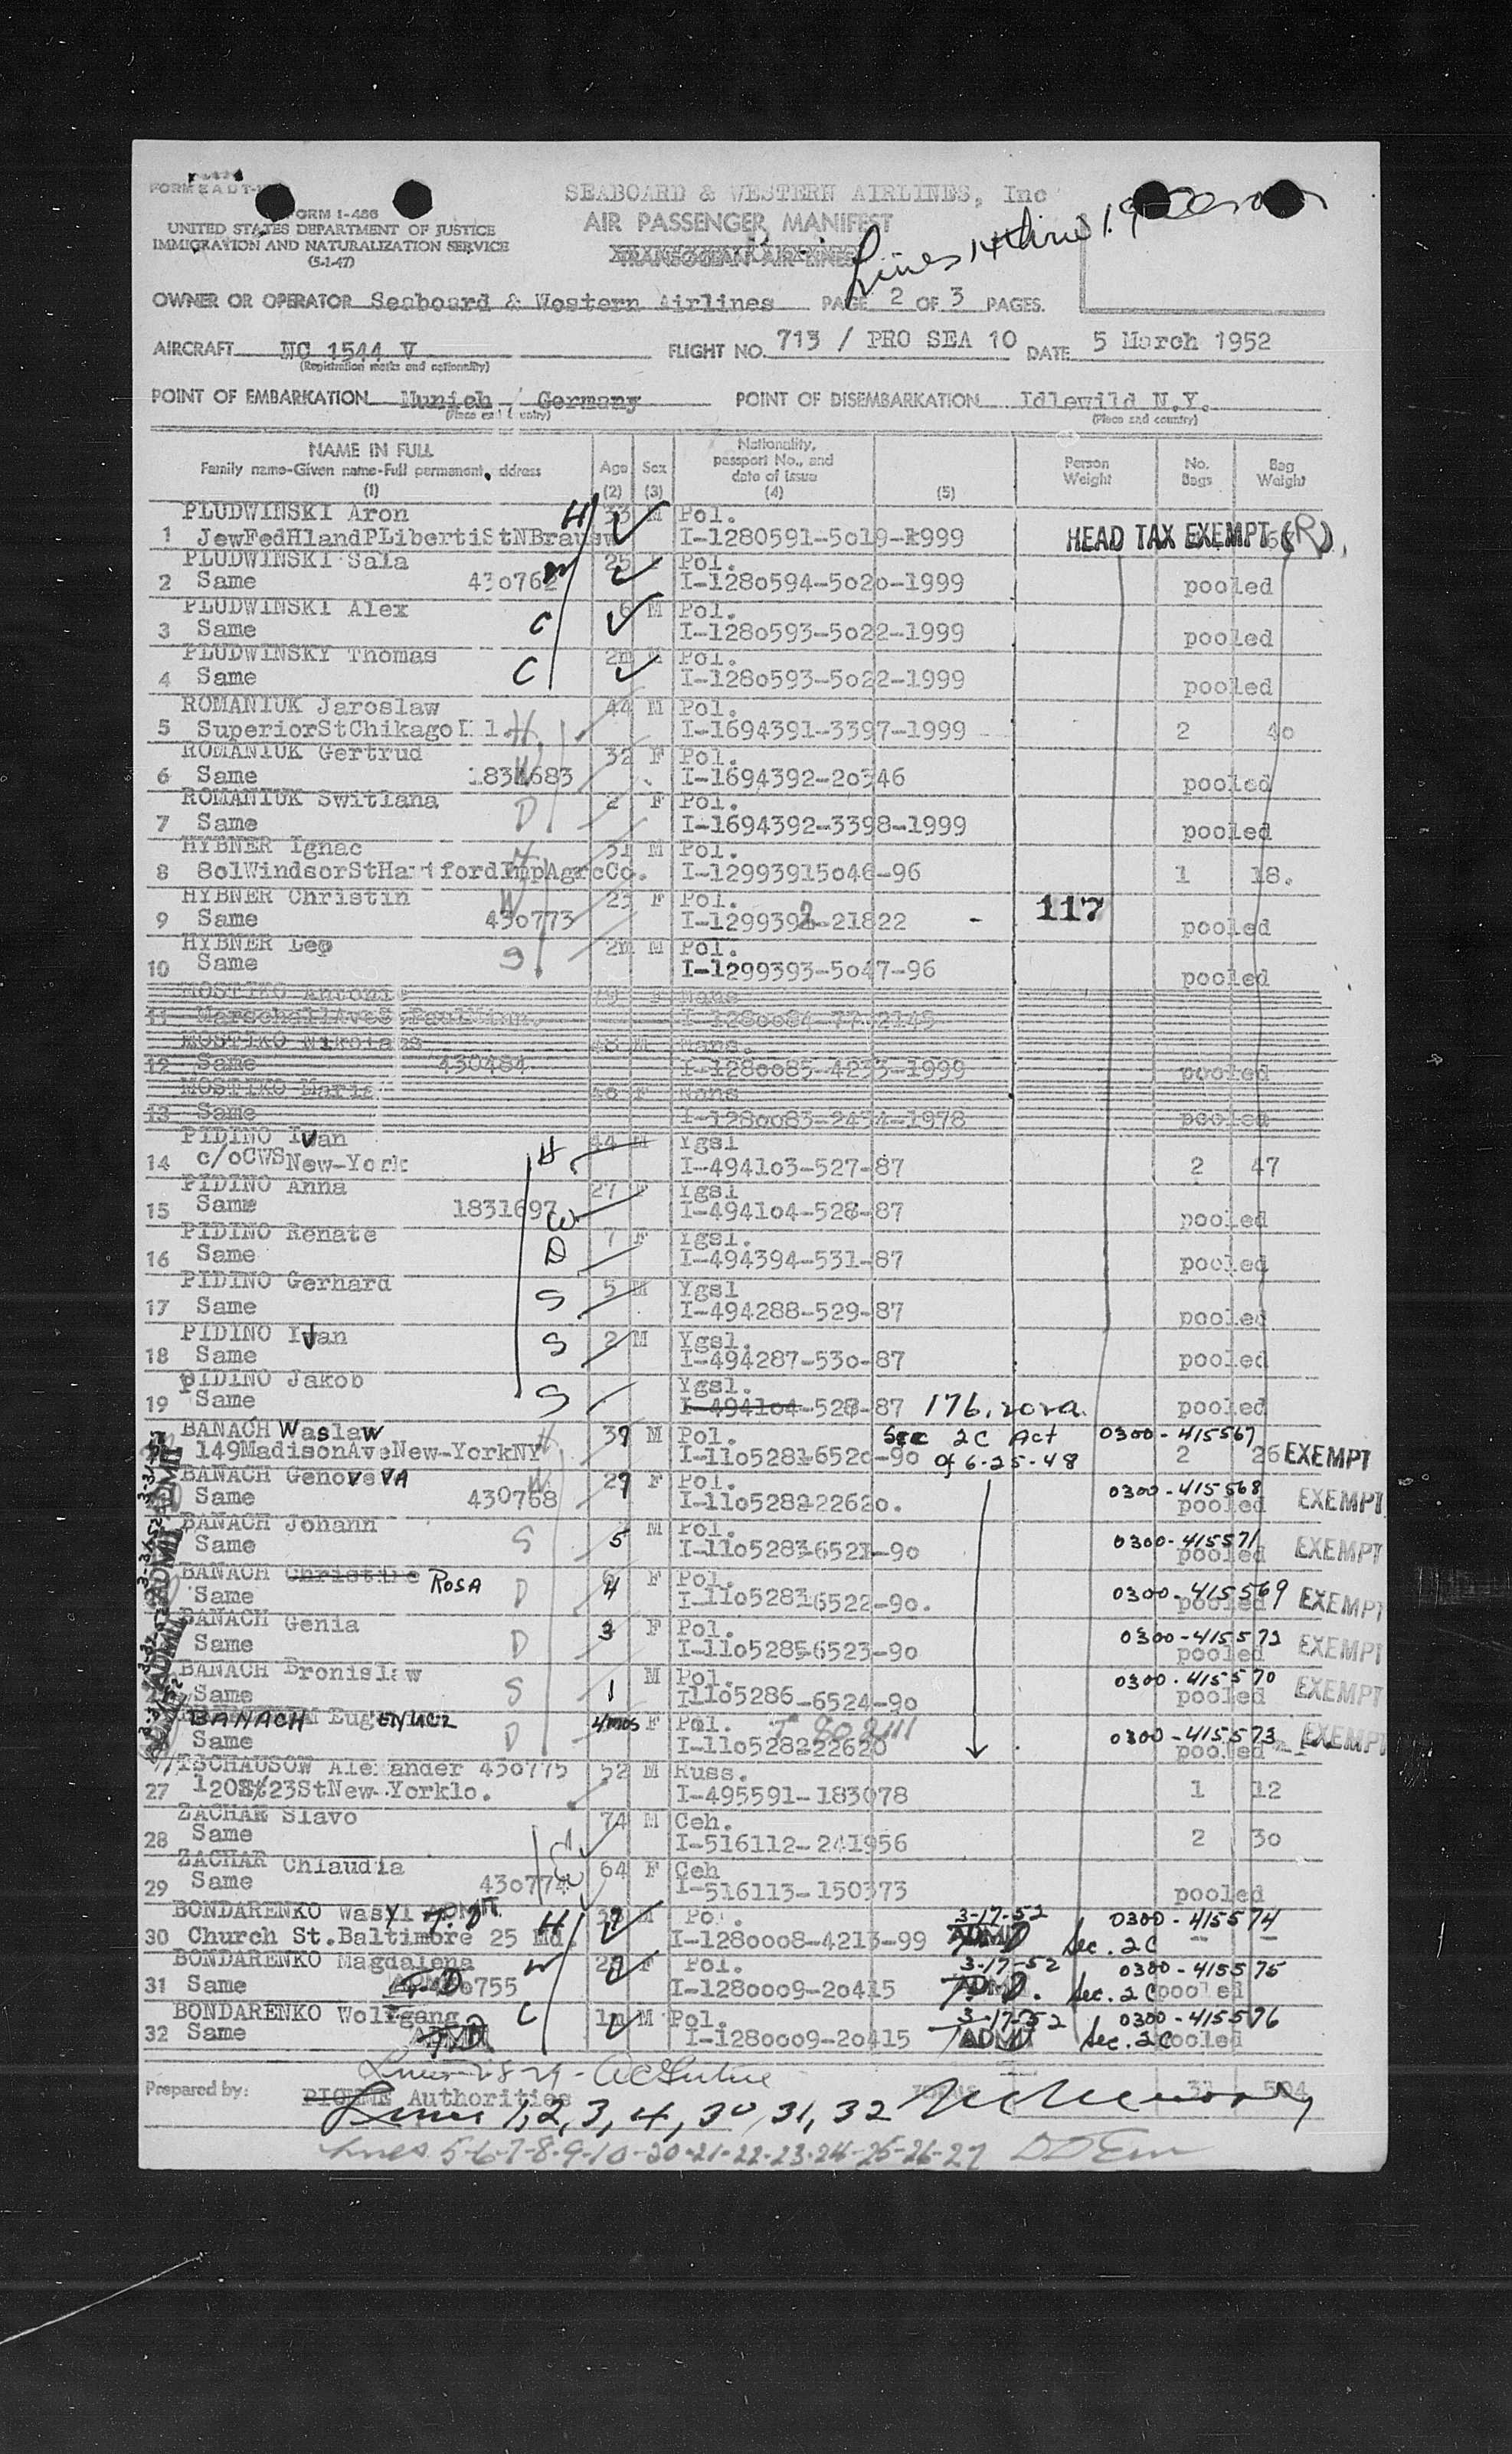 FORM I-466
UNITED STATES DEPARTMENT OF JUSTICE
IMMIGRATION AND NATURALIZATION SERVICE
(5-1-47)
SEABOARD & WESTERN AIRLINES, Inc
AIR PASSENGER MANIFEST
TRANSOCEAN AIR LINES
Lines 14 thru 19
OWNER OR OPERATOR Seaboard & Western Airlines PAGE 2 OF 3 PAGES.
AIRCRAFT NC 1544 V FLIGHT NO. 713 / PRO SEA 10 DATE 5 March 1952
(Registration marks and nationality)
POINT OF EMBARKATION Munich / Germany POINT OF DISEMBARKATION Idlewild N.Y.
(Place and country) (Place and country)
NAME IN FULL Age Sex Nationality, passport No., and date of issue Person Weight No. Bags Bag Weight
Family name-Given name-Full permanent address
(1) (2) (3) (4) (5)
PLUDWINSKI Aron H 33 M Pol.
1 JewFedHlandPLibertiStNBrausw I-1280591-5019-1999 HEAD TAX EXEMPT (R)
PLUDWINSKI Sala 25 F Pol.
2 Same 430762 I-1280594-5020-1999 pooled
PLUDWINSKI Alex 6 M Pol.
3 Same C I-1280593-5022-1999 pooled
PLUDWINSKY Thomas 2m Pol.
4 Same C I-1280593-5022-1999 pooled
ROMANIUK Jaroslaw 44 M Pol.
5 SuperiorStChikagoIl. H I-1694391-3397-1999 2 40
ROMANIUK Gertrud 32 F Pol.
6 Same 1831683 I-1694392-20346 pooled
ROMANIUK Switlana 2 F Pol.
7 Same D I-1694392-3398-1999 pooled
HYBNER Ignac 31 M Pol.
8 801WindsorStHartfordImpAgrcCo. I-12993915046-96 1 18.
HYBNER Christin W 23 F Pol.
9 Same 430773 I-1299392-21822 - 117 pooled
HYBNER Leo 2m M Pol.
10 Same S I-1299393-5047-96 pooled
MOSTIKO Antoni F Nans
11 MarschallAveStPaulMinn. I-1280084-77-2149
MOSTIKO Nikolaus 48 M Nans.
12 Same 430484 I-1280085-4233-1999 pooled
MOSTIKO Maria F Nans
13 Same I-1280083-2434-1978 pooled
PIDINO Ivan H 44 M Ygsl
14 c/oCWSNew-York I-494103-527-87 2 47
PIDINO Anna 27 F Ygsl
15 Same 1831697 W I-494104-528-87 pooled
PIDINO Renate 7 F Ygsl.
16 Same D I-494394-531-87 pooled
PIDINO Gerhard 5 M Ygsl
17 Same S I-494288-529-87 pooled
PIDINO Ivan 2 M Ygsl.
18 Same S I-494287-530-87 pooled
PIDINO Jakob Ygsl.
19 Same S I-494104-528-87 176.201a pooled
BANACH Waslaw 39 M Pol. Sec 2C Act 0300-415567
149MadisonAveNew-YorkNY I-1105281-6520-90 of 6-25-48 2 26 EXEMPT
BANACH GenoveVA 29 F Pol. 0300-415568
Same 430768 I-1105282-22620. pooled EXEMPT
BANACH Johann M Pol. 0300-415571
Same S 5 I-1105283-6521-90 pooled EXEMPT
BANACH Christine ROSA F Pol.
Same D 4 I-1105283-6522-90. 0300-415569 pooled EXEMPT
BANACH Genia 3 F Pol. 0300-415572
Same D I-1105285-6523-90 pooled EXEMPT
BANACH Bronislaw M Pol. 0300-415570
Same S 1 I-1105286-6524-90 pooled EXEMPT
BANACH 4mos F Pol.
Same D I-1105282-22620 0300-415573 pooled EXEMPT
TSCHAUSOW Alexander 430775 52 M Russ.
27 I-495591-183078 1 12
ZACHAR Slavo 74 M Ceh.
28 Same I-516112-241956 2 30
ZACHAR Chlaudia 64 F Ceh
29 Same 430774 I-516113-150373 pooled
BONDARENKO Wasyl M Pol. 3-17-52 0300-415574
30 Church St.Baltimore 25 Md. H I-1280008-4213-99 ADMD Sec. 2C
BONDARENKO Magdalena W F Pol. 3-17-52 0300-415575
31 Same I-1280009-20415 Sec. 2C pooled
BONDARENKO Wolfgang C 1m M Pol. 3-17-52 0300-415576
32 Same I-1280009-20415 Sec. 2C pooled
Lines 28 29
Prepared by: PICMME Authorities 504
Lines 1, 2, 3, 4, 30, 31, 32
Lines 5-6-7-8-9-10-20-21-22-23-24-25-26-27